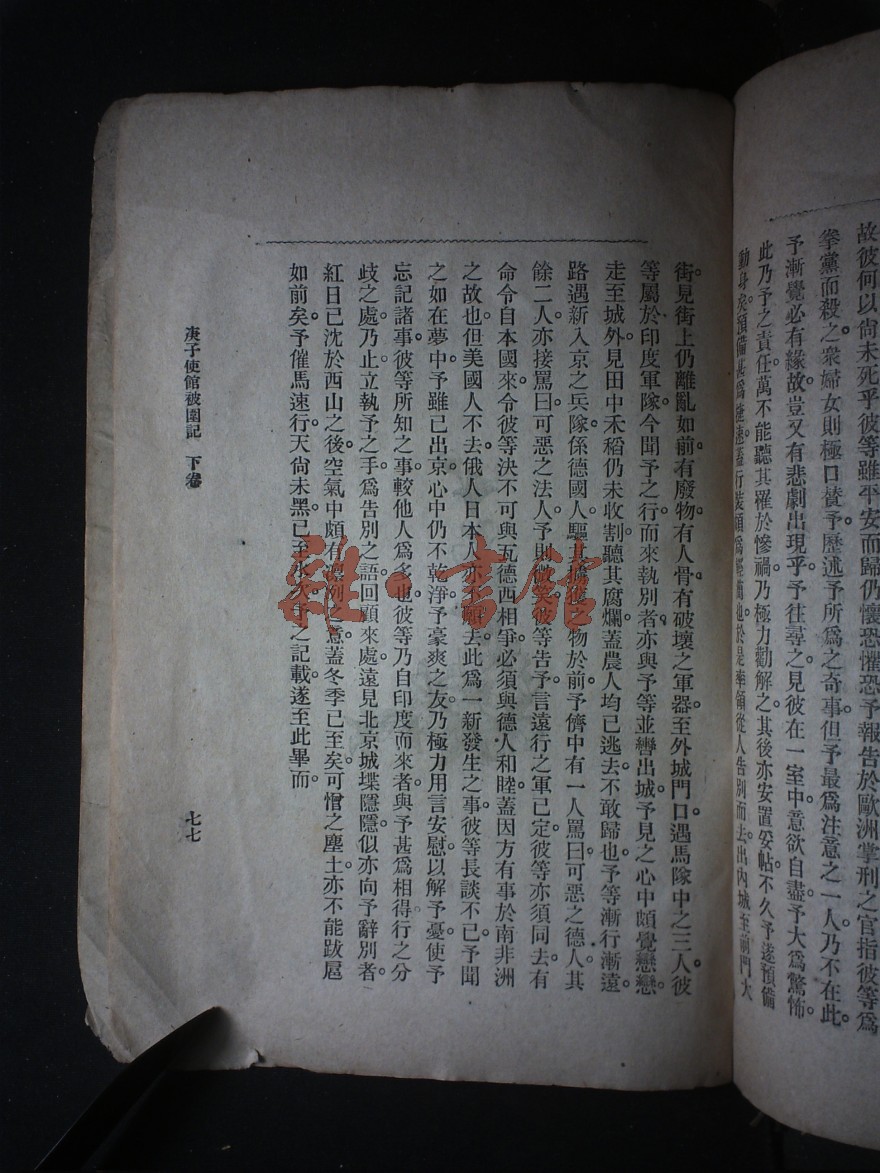 故彼何以尙未死乎彼等雖平安而歸仍懷恐懼恐予報告於歐洲掌刑之官指彼等爲
拳黨而殺之衆婦女則極口贊予歷述予所爲之奇事但予最爲注意之一人乃不在此
予漸覺必有緣故豈又有悲劇出現乎予往尋之見彼在一室中意欲自盡予大爲驚怖
此乃予之責任萬不能聽其罹於慘禍乃極力勸解之其後亦安置妥帖不久予遂預備
動身矣預備甚爲捷速蓋行裝頗爲輕簡也於是率領從人告別而去出內城至前門大
街見街上仍離亂如前有廢物有人骨有破壞之軍器至外城門口遇馬隊中之三人彼
等屬於印度軍隊今聞予之行而來執別者亦與予等並轡出城予見之心中頗覺戀戀
走至城外見田中禾稻仍未收割聽其腐爛蓋農人均已逃去不敢歸也予等漸行漸遠
路遇新入京之兵隊係德國人驅其擄獲之物於前予儕中有一人罵曰可惡之德人其
餘二人亦接罵曰可惡之法人予則微笑彼等告予言遠行之軍已定彼等亦須同去有
命令自本國來令彼等決不可與瓦德西相爭必須與德人和睦蓋因方有事於南非洲
之故也但美國人不去俄人日本人亦不願去此爲一新發生之事彼等長談不已予聞
之如在夢中予雖已出京心中仍不乾淨予豪爽之友乃極力用言安慰以解予憂使予
忘記諸事彼等所知之事較他人爲多也彼等乃自印度而來者與予甚爲相得行之分
歧之處乃止立執予之手爲告別之語回顧來處遠見北京城堞隱隱似亦向予辭別者
紅日已沈於西山之後空氣中頗有凜冽之意蓋冬季已至矣可憎之塵土亦不能跋扈
如前矣予催馬速行天尙未黑已至永久予之記載遂至此畢而
庚子使館被圍記　下卷
七七
雜·書館